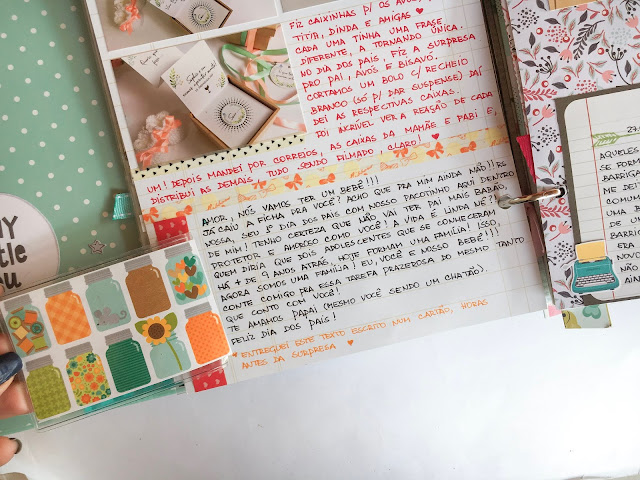 FIZ CAIXINHAS P/ OS AVÓS,
TITIA, DINDA E AMIGAS ♥
CADA UMA TINHA UMA FRASE
DIFERENTE, A TORNANDO ÚNICA.
NO DIA DOS PAIS, FIZ A SURPRESA
PRO PAI, AVÓS E BISAVÓ.
CORTAMOS UM BOLO C/ RECHEIO
BRANCO (SÓ P/ DAR SUSPENSE) DAÍ
DEI AS RESPECTIVAS CAIXAS.
FOI INCRÍVEL VER A REAÇÃO DE CADA
UM! DEPOIS MANDEI POR CORREIOS, AS CAIXAS DA MAMÃE E PABI E,
DISTRIBUI AS DEMAIS. TUDO SENDO FILMADO, CLARO! ♥
AMOR, NÓS VAMOS TER UM BEBÊ!!!
JÁ CAIU A FICHA PRA VOCÊ? ACHO QUE PRA MIM AINDA NÃO!! RS
NOSSA, SEU 1º DIA DOS PAIS COM NOSSO PACOTINHO AQUI DENTRO
DE MIM! TENHO CERTEZA QUE NÃO VAI TER PAI MAIS BABÃO,
PROTETOR E AMOROSO COMO VOCÊ! A VIDA É LINDA NÉ?
QUEM DIRIA QUE DOIS ADOLESCENTES QUE SE CONHECERAM
HÁ + DE 9 ANOS ATRÁS, HOJE FORMAM UMA FAMÍLIA! ISSO,
AGORA SOMOS UMA FAMÍLIA! EU, VOCÊ E NOSSO BEBÊ!!!
CONTE COMIGO PRA ESSA TAREFA PRAZEROSA DO MESMO TANTO
QUE CONTO COM VOCÊ!
TE AMAMOS PAPAI (MESMO VOCÊ SENDO UM CHATÃO).
FELIZ DIA DOS PAIS!
♥ ENTREGUEI ESTE TEXTO ESCRITO NUM CARTÃO, HORAS
ANTES DA SURPRESA ♥
AQUELES
SE FOR
BARRIGA
DE UMA
COMUM
UMA
VEZ
BARRIG
ERA
NOVO
NÃO
AIN